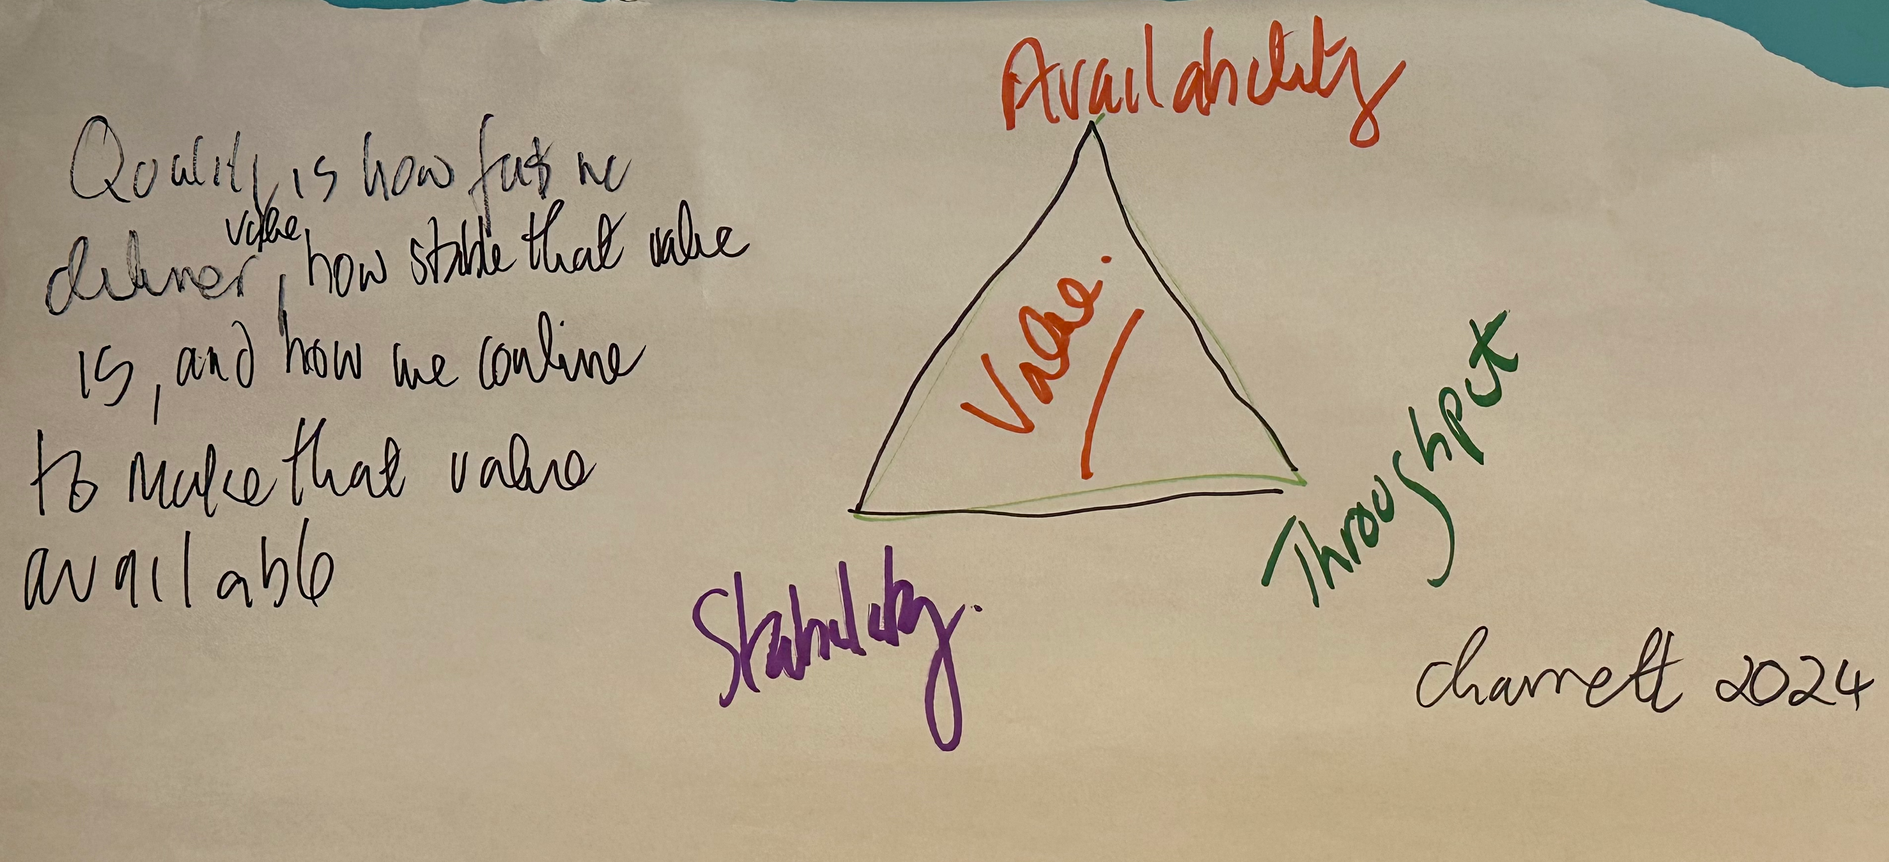 Quality is how fast we
value
deliver, how stable that value
is, and how we continue
to make that value
available
Availability
Value.
Throughput
Stability.
charrett 2024